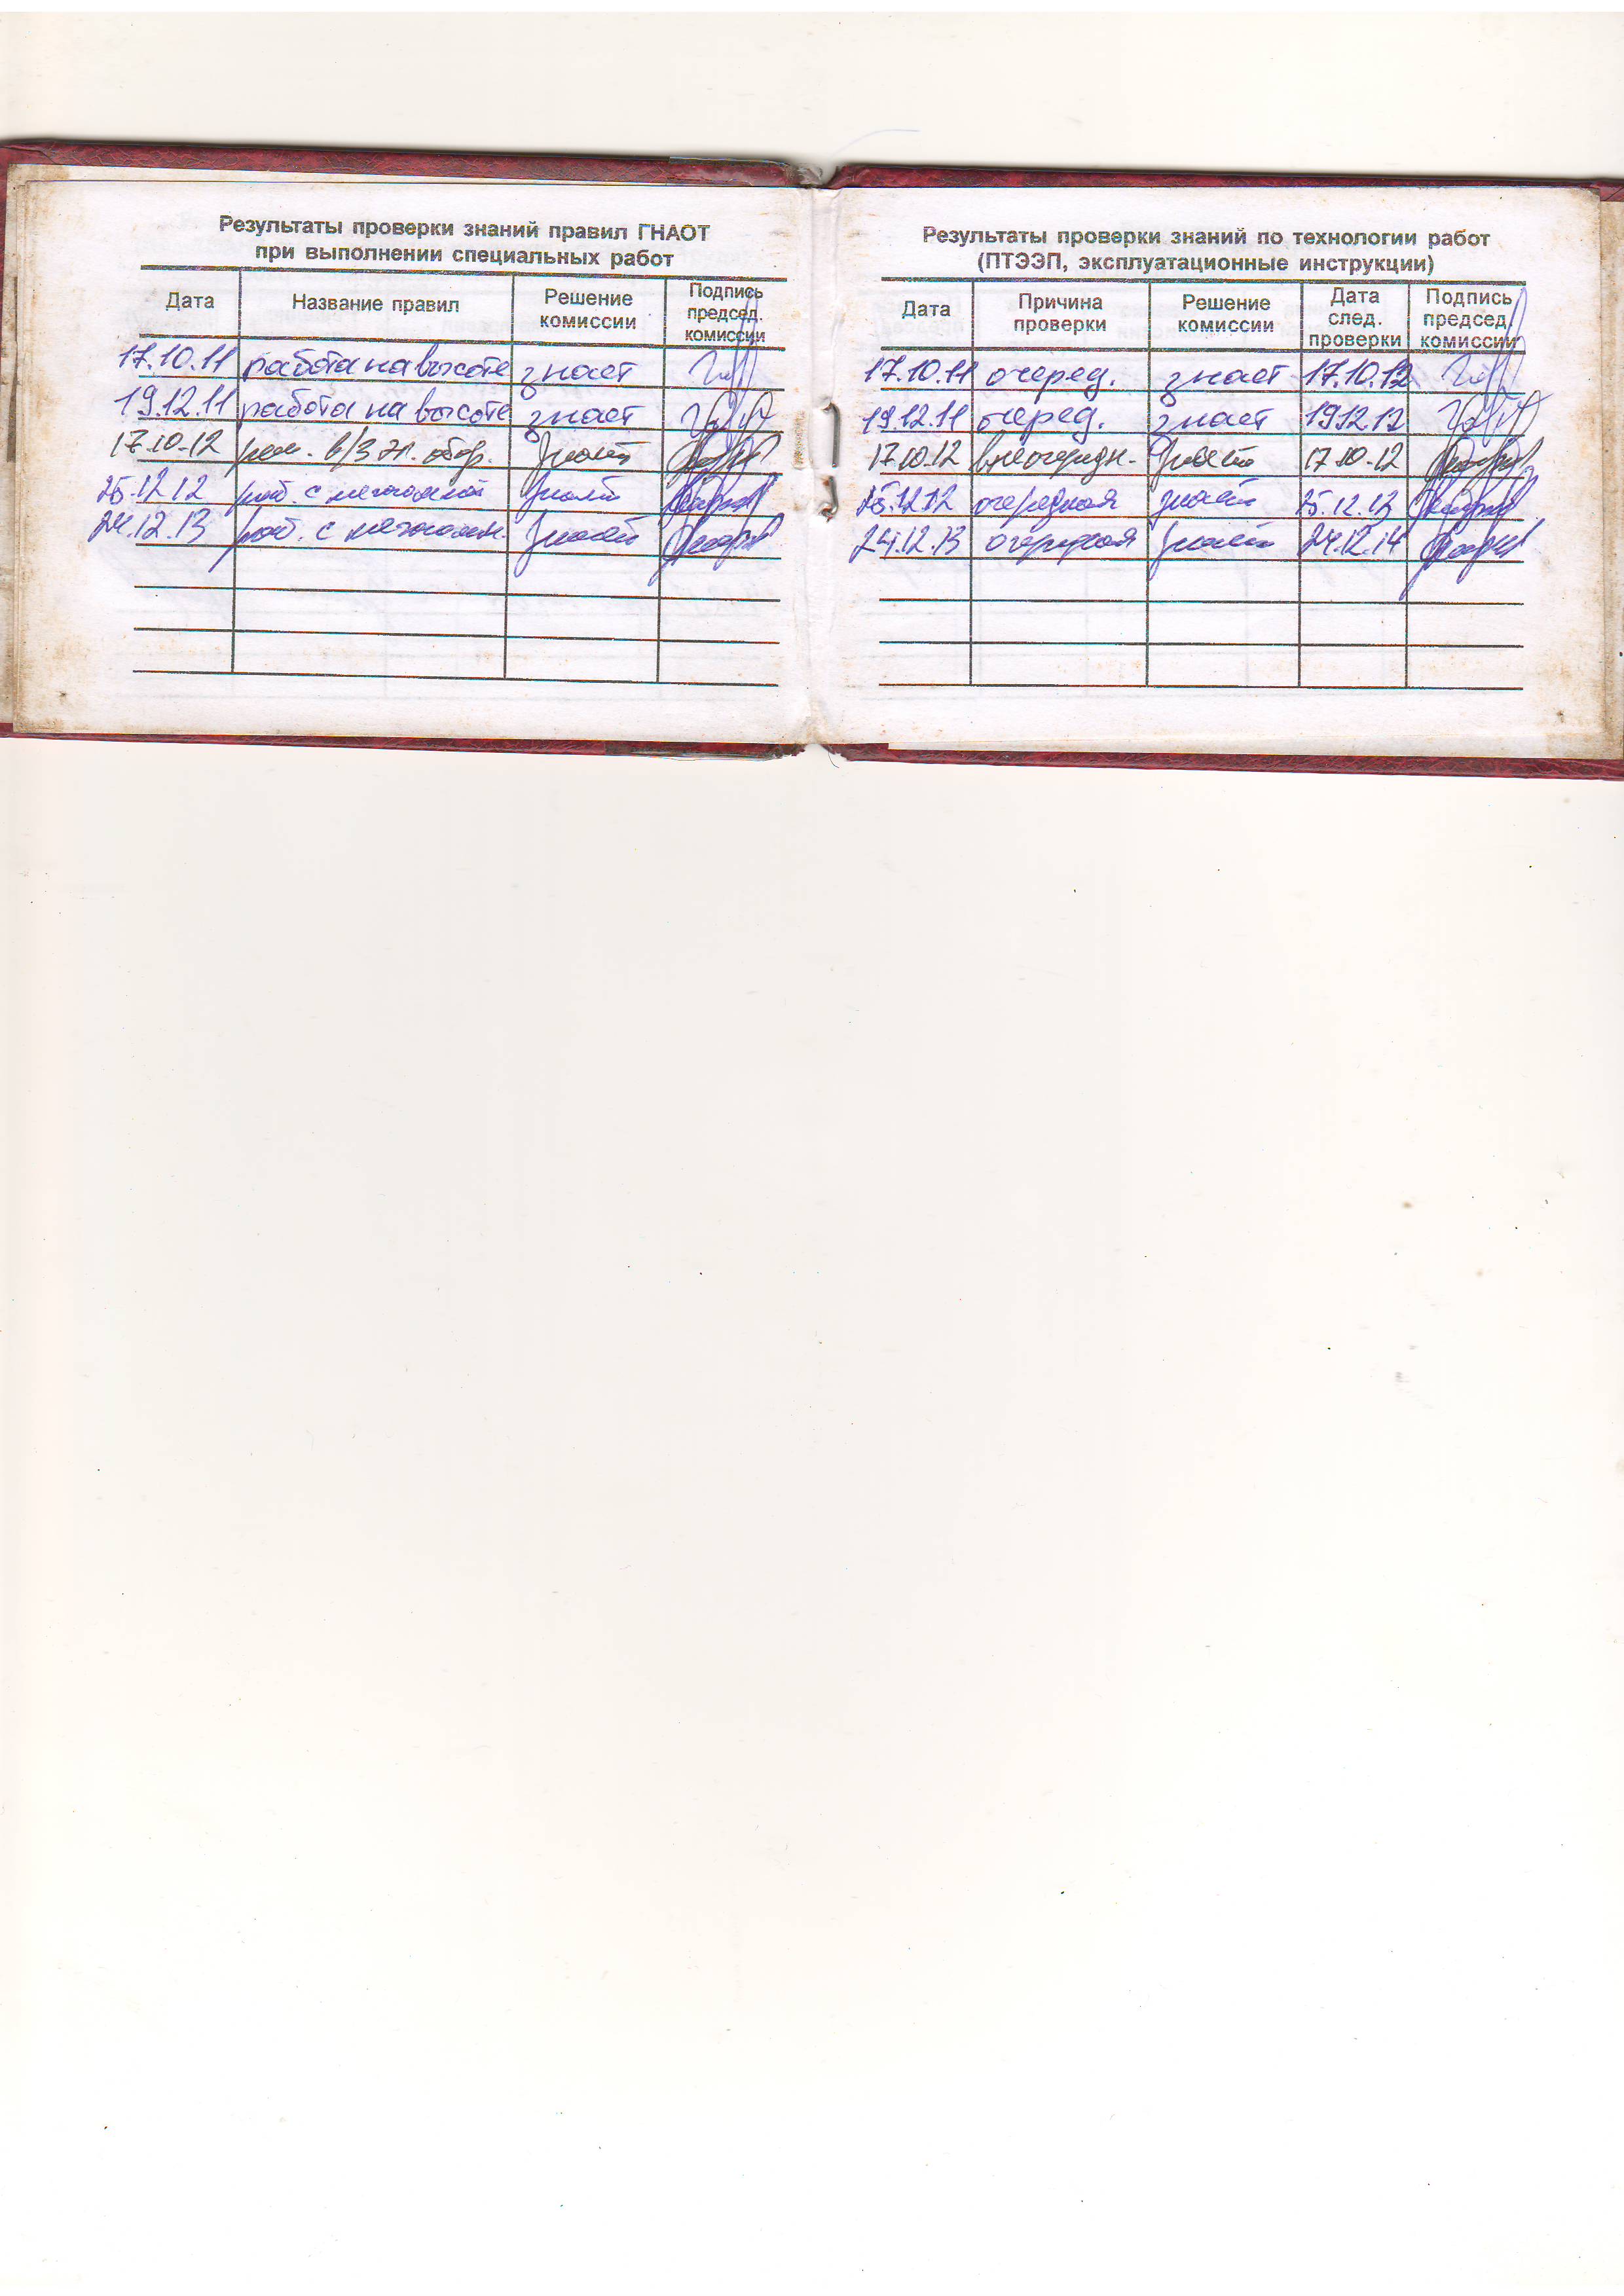 Результаты проверки знаний правил ГНАОТ
при выполнении специальных работ
Дата Название правил Решение комиссии Подпись председ. комиссии
17.10.11 работа на высоте знает
19.12.11 работа на высоте знает
17.10.12 рем. в/з эл. обор. знает
25.12.12 раб. с знает
24.12.13 раб. с знает
Результаты проверки знаний по технологии работ
(ПТЭЭП, эксплуатационные инструкции)
Дата Причина проверки Решение комиссии Дата след. проверки Подпись председ. комиссии
17.10.11 очеред. знает 17.10.12
19.12.11 очеред. знает 19.12.12
17.10.12 внеочередн. знает 17.10.12
25.12.12 очередная знает 25.12.13
24.12.13 очередная знает 24.12.14